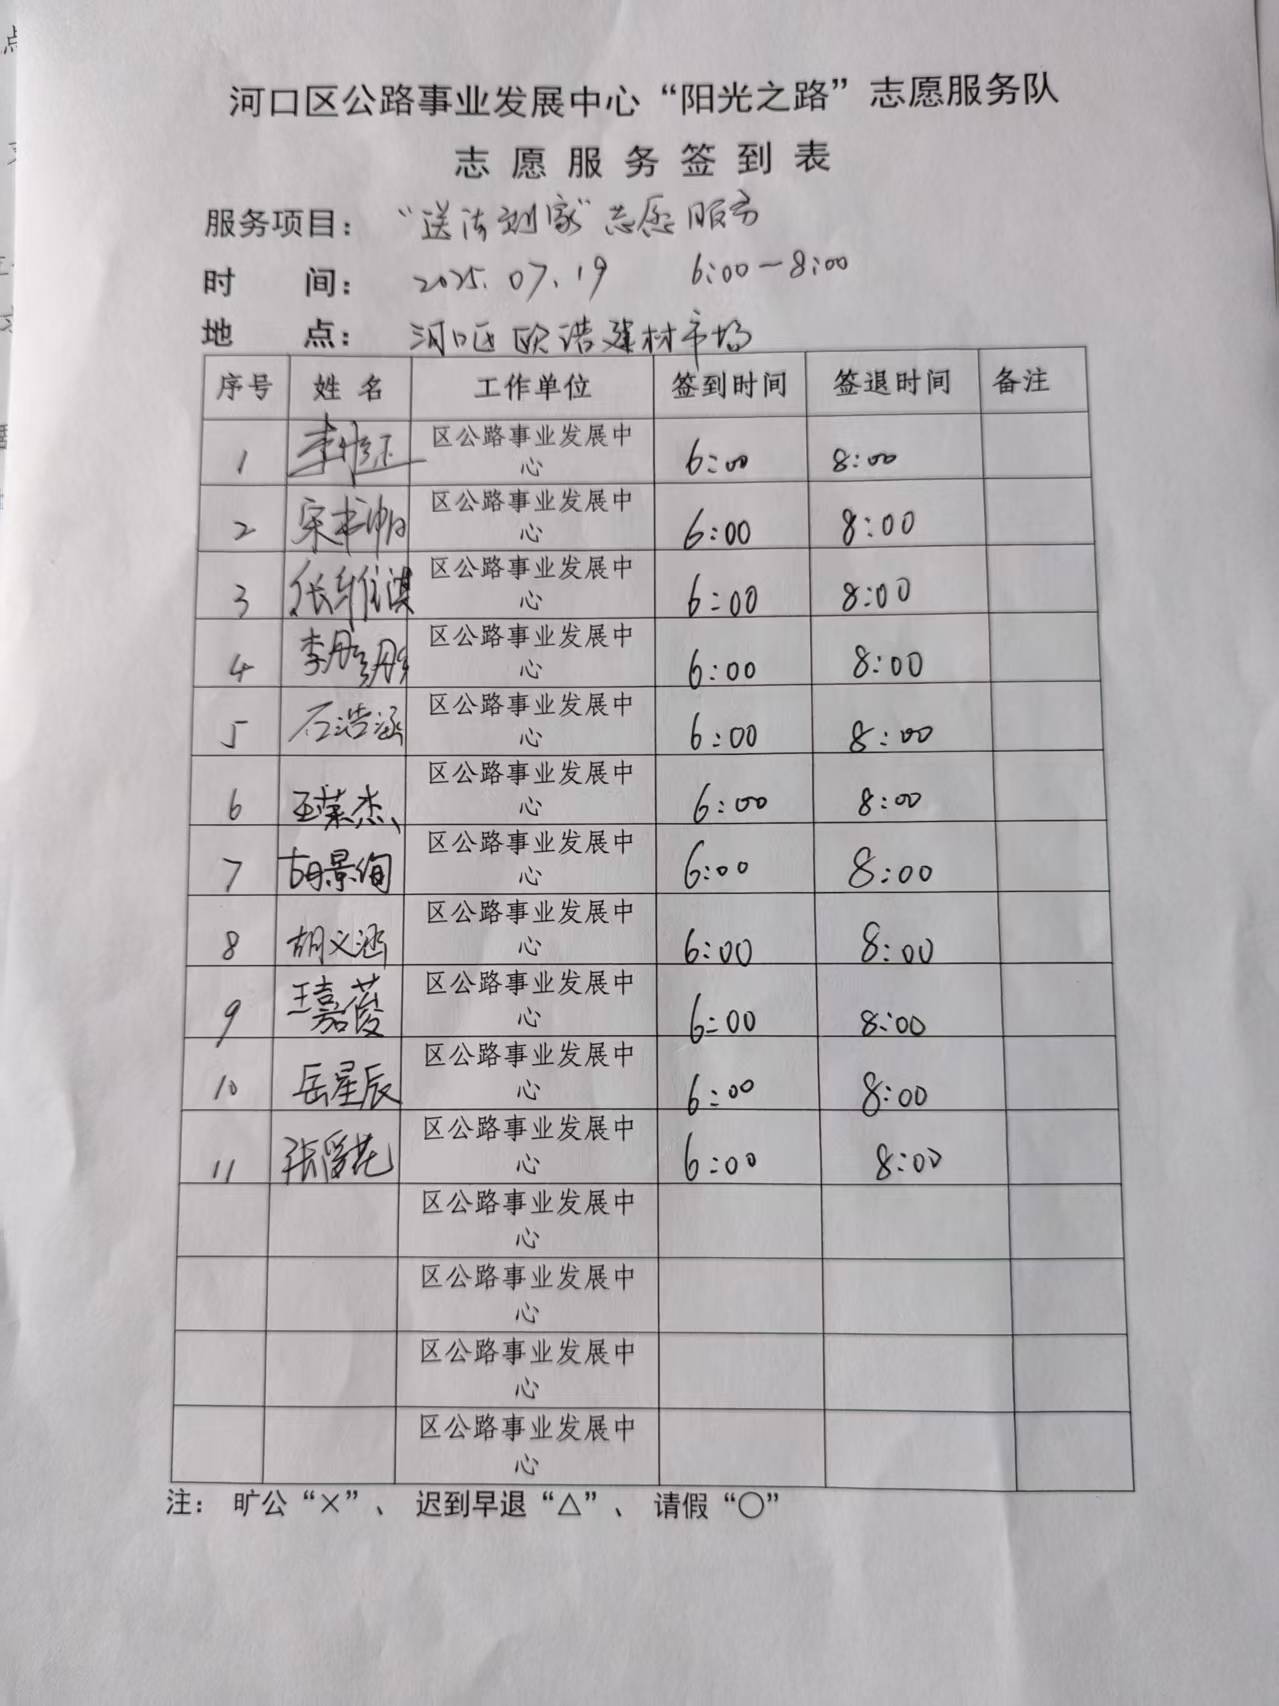 河口区公路事业发展中心“阳光之路”志愿服务队
志愿服务签到表
服务项目： “送法到家”志愿服务
时 间： 2025.07.19 6:00—8:00
地 点： 河口区欧浩建材市场
序号 姓名 工作单位 签到时间 签退时间 备注
1 区公路事业发展中 6:00 8:00
心
2 区公路事业发展中 6:00 8:00
心
3 区公路事业发展中 6:00 8:00
心
4 李彤彤 区公路事业发展中 6:00 8:00
心
5 石浩涵 区公路事业发展中 6:00 8:00
心
6 王荣杰 区公路事业发展中 6:00 8:00
心
7 胡景绚 区公路事业发展中 6:00 8:00
心
8 胡义涵 区公路事业发展中 6:00 8:00
心
9 王嘉葰 区公路事业发展中 6:00 8:00
心
10 岳星辰 区公路事业发展中 6:00 8:00
心
11 区公路事业发展中 6:00 8:00
心
区公路事业发展中
心
区公路事业发展中
心
区公路事业发展中
心
区公路事业发展中
心
注： 旷公“×”、 迟到早退“△”、 请假“○”